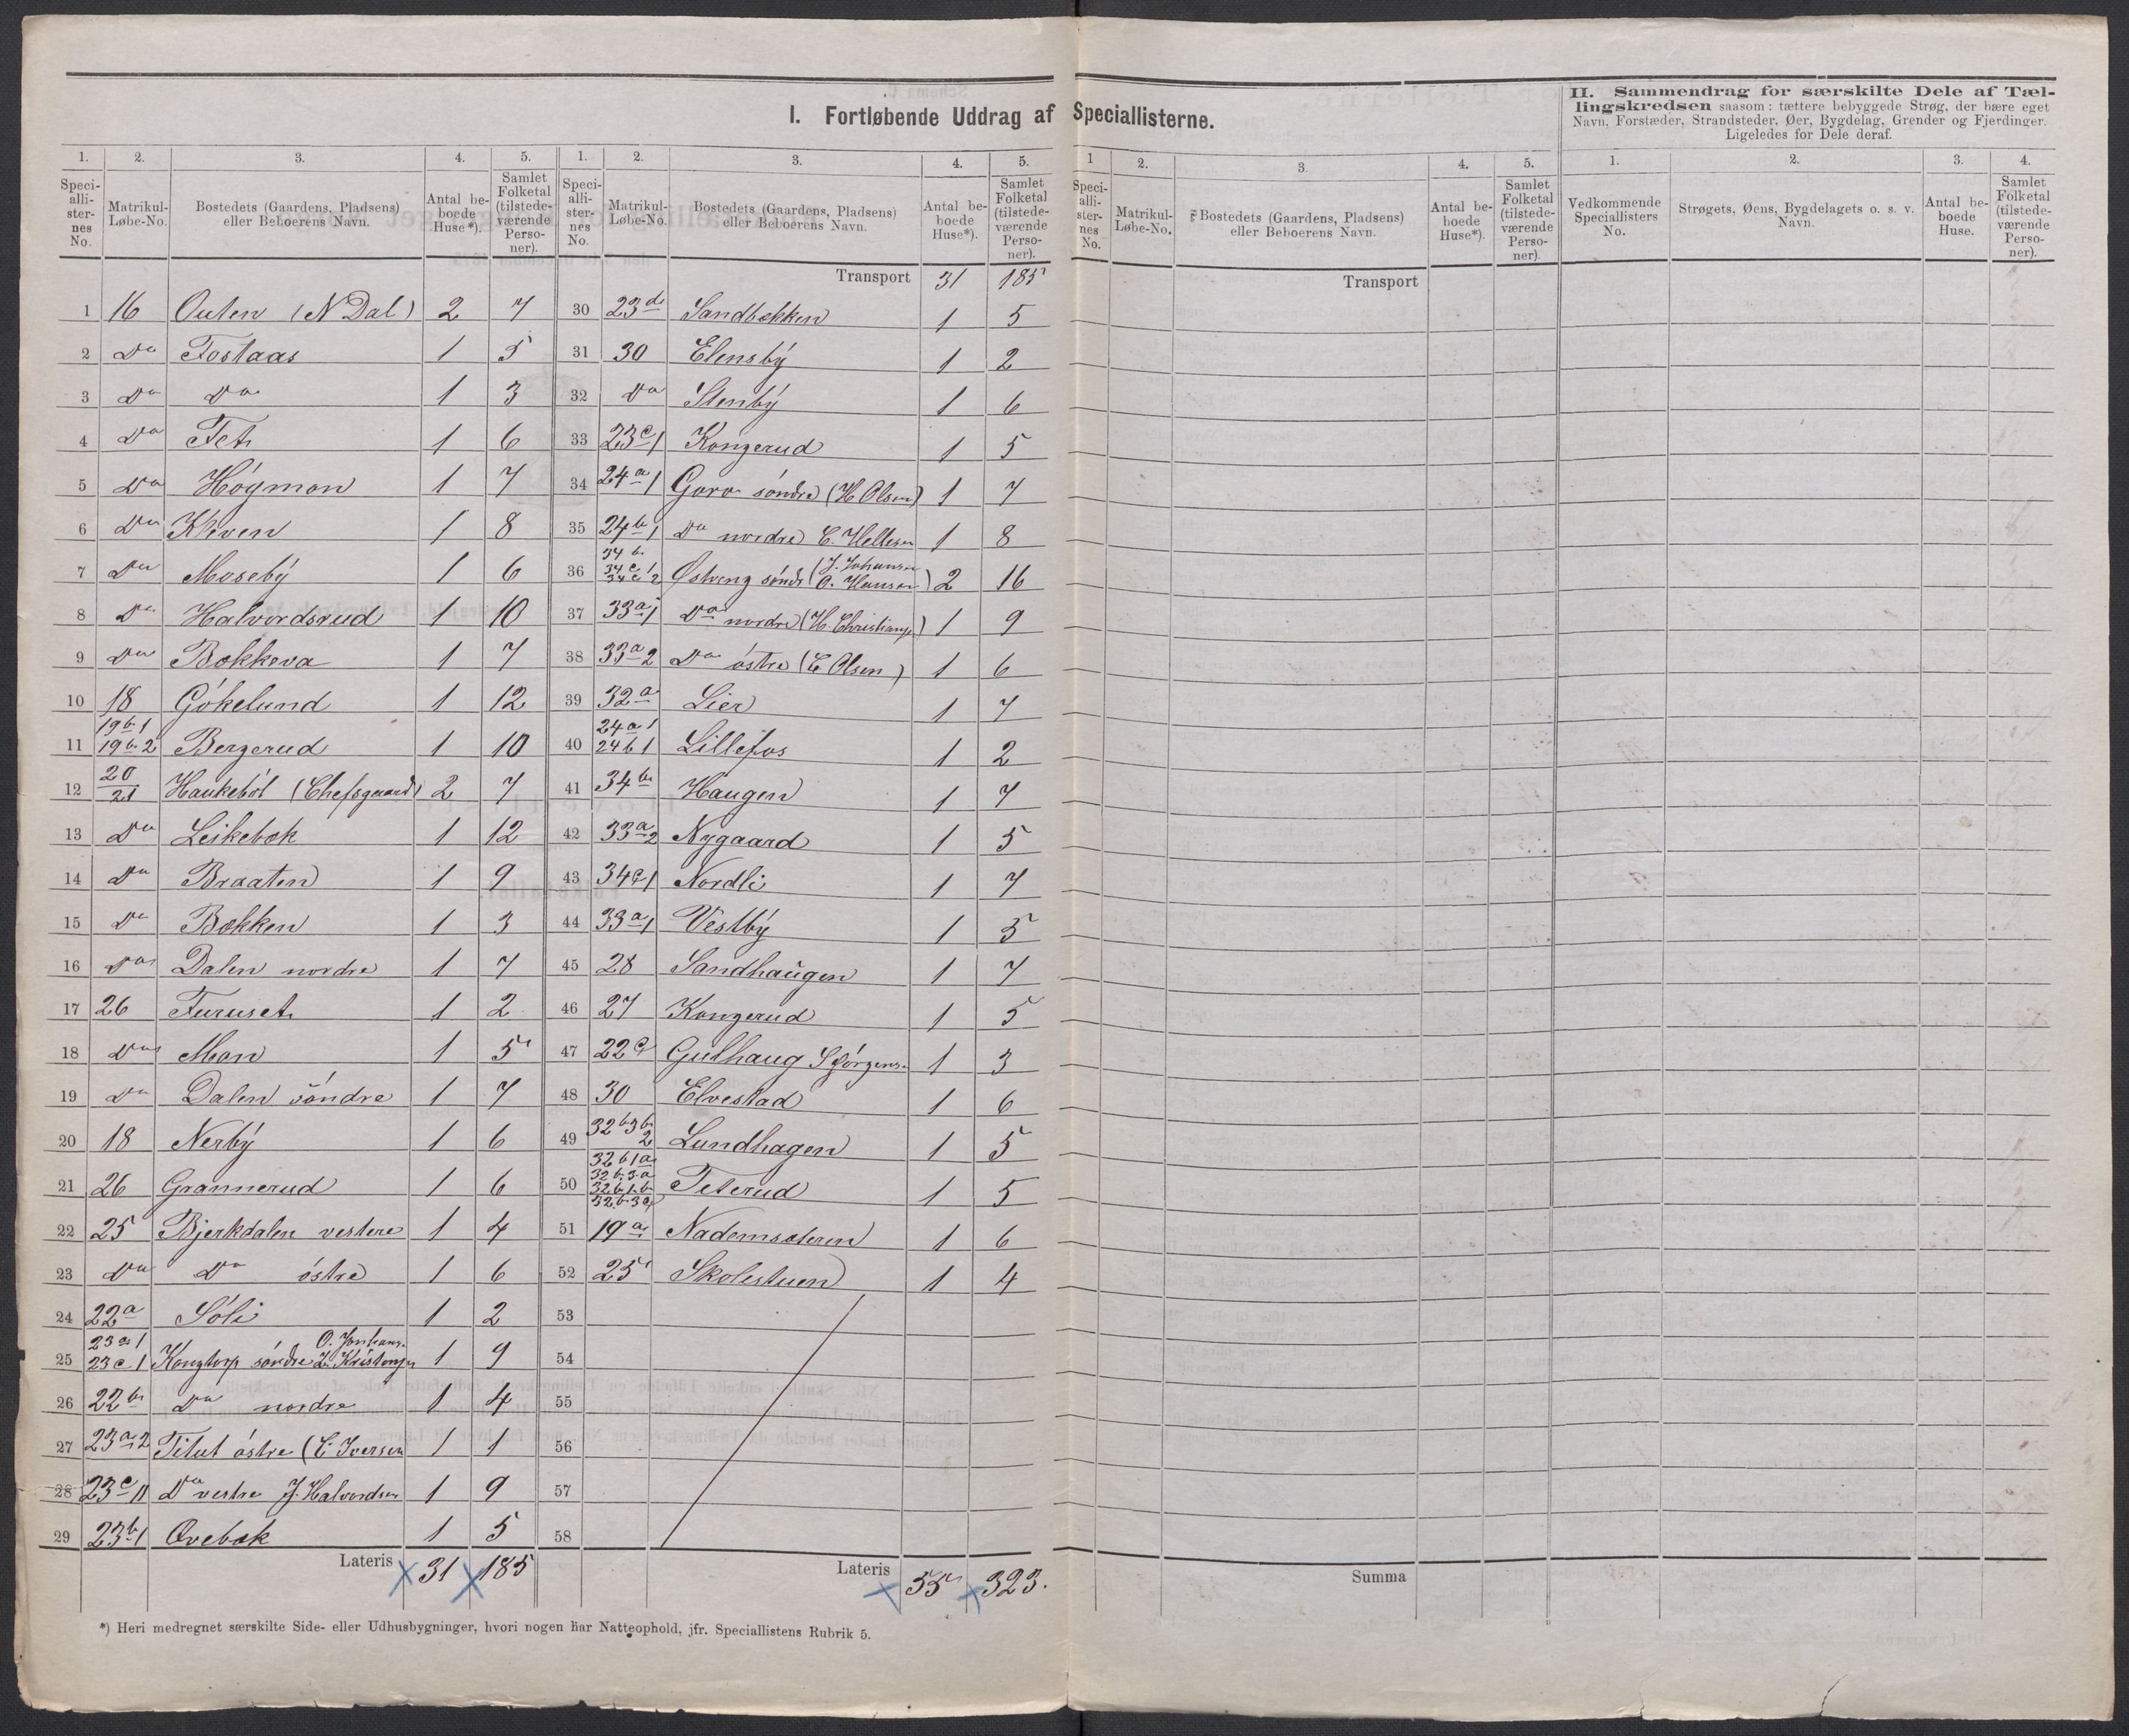 I. Fortløbende Uddrag af Speciallisterne.
II. Sammendrag for særskilte Dele af Tæl-
lingskredsen saasom: tættere bebyggede Strøg, der bære eget
Navn, Forstæder, Strandsteder, Øer, Bygdelag, Grender og Fjerdinger.
Ligeledes for Dele deraf.
1. 2. 3. 4. 5. 1. 2. 3. 4. 5. 1 2. 3. 4. 5. 1. 2. 3. 4.
Speci-alli-ster-nes No. Matrikul-Løbe-No. Bostedets (Gaardens, Pladsens) eller Beboerens Navn. Antal be-boede Huse*). Samlet Folketal (tilstede-værende Perso-ner).
Speci-alli-ster-nes No. Matrikul-Løbe-No. Bostedets (Gaardens, Pladsens) eller Beboerens Navn. Antal be-boede Huse*). Samlet Folketal (tilstede-værende Perso-ner).
Speci-alli-ster-nes No. Matrikul-Løbe-No. Bostedets (Gaardens, Pladsens) eller Beboerens Navn. Antal be-boede Huse*). Samlet Folketal (tilstede-værende Perso-ner).
Vedkommende Speciallisters No. Strøgets, Øens, Bygdelagets o. s. v. Navn. Antal be-boede Huse. Samlet Folketal (tilstede-værende Perso-ner).
1 16 Outen (N Dal) 2 7
2 Do Fostaas 1 5
3 Do Do 1 3
4 Do Fet 1 6
5 Do Högmon 1 7
6 Do Kleven 1 8
7 Do Moseby 1 6
8 Do Halvordsrud 1 10
9 Do Bækkeva 1 7
10 18 Gökelund 1 12
11 19b1 19b2 Bergerud 1 10
12 20 21 Haukeböl (Chefsgaard) 2 7
13 Do Leikebæk 1 12
14 Do Braaten 1 9
15 Do Bækken 1 3
16 Do Dalen nordre 1 7
17 26 Furuset 1 2
18 Do Mon 1 5
19 Do Dalen söndre 1 7
20 18 Nerby 1 6
21 26 Grannerud 1 6
22 25 Bjerkdalen vestere 1 4
23 Do Do östre 1 6
24 22a Söli 1 2
25 23a1 23c1 Kongtorp söndre 1 9
26 22b Do nordre 1 4
27 23a2 Titut östre (E. Iversen 1 1
28 23c Do vestre J. Halvordsen 1 9
29 23b1 Ovebæk 1 5
Lateris 31 185
Transport 31 185
30 23d Sandbækken 1 5
31 30 Elensby 1 2
32 Do Stenby 1 6
33 23c1 Kongerud 1 5
34 24a1 Garo söndre (H Olsen) 1 7
35 24b1 Do nordre C. Hellesen 1 8
36 34b 34c1 34c2 Østveng söndr (J. Johansen O. Hansen) 2 16
37 33a1 Do nordre (H. Christians) 1 9
38 33a2 Do östre (E Olsen) 1 6
39 32a Lier 1 7
40 24a1 24b1 Lillefos 1 2
41 34b Haugen 1 7
42 33a2 Nygaard 1 5
43 34c1 Nordli 1 7
44 33a1 Vestby 1 5
45 28 Sandhaugen 1 7
46 27 Kongerud 1 5
47 22c Gulhaug 1 3
48 30 Elvestad 1 6
49 32b3b2 Lundhagen 1 5
50 32b1a 32b3a 32b1b 32b3c Teterud 1 5
51 19a Nademsæteren 1 6
52 25 Skolestuen 1 4
53
54
55
56
57
58
Lateris 55 323.
Transport
Summa
*) Heri medregnet særskilte Side- eller Udhusbygninger, hvori nogen har Natteophold, jfr. Speciallistens Rubrik 5.